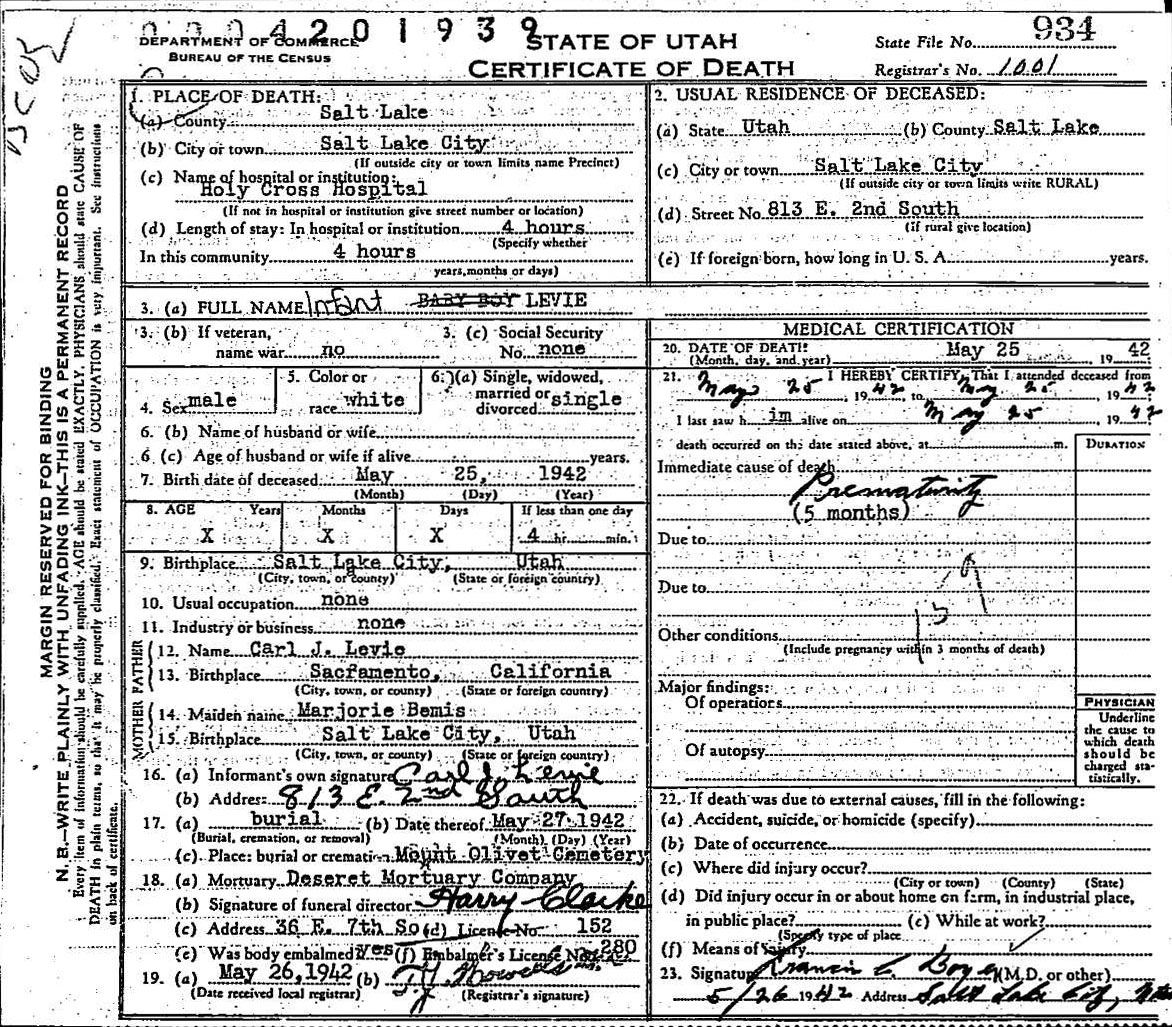 0004201939
DEPARTMENT OF COMMERCE
BUREAU OF THE CENSUS
STATE OF UTAH
CERTIFICATE OF DEATH
State File No. 934
Registrar's No. 1001
MARGIN RESERVED FOR BINDING
N. B.—WRITE PLAINLY WITH UNFADING INK—THIS IS A PERMANENT RECORD
Every item of information should be carefully supplied. AGE should be stated EXACTLY. PHYSICIANS should state CAUSE OF
DEATH in plain terms, so that it may be properly classified. Exact statement of OCCUPATION is very important. See instructions
on back of certificate.
1. PLACE OF DEATH:
(a) County Salt Lake
(b) City or town Salt Lake City
(If outside city or town limits name Precinct)
(c) Name of hospital or institution:
Holy Cross Hospital
(If not in hospital or institution give street number or location)
(d) Length of stay: In hospital or institution 4 hours
(Specify whether
In this community 4 hours
years, months or days)
2. USUAL RESIDENCE OF DECEASED:
(a) State Utah (b) County Salt Lake
(c) City or town Salt Lake City
(If outside city or town limits write RURAL)
(d) Street No. 813 E. 2nd South
(If rural give location)
(e) If foreign born, how long in U. S. A. years.
3. (a) FULL NAME Infant BABY BOY LEVIE
3. (b) If veteran,
name war no
3. (c) Social Security
No. none
4. Sex male
5. Color or
race white
6. (a) Single, widowed,
married or
divorced single
6. (b) Name of husband or wife
6. (c) Age of husband or wife if alive years.
7. Birth date of deceased May 25, 1942
(Month) (Day) (Year)
8. AGE Years Months Days If less than one day
X X X 4 hr. min.
9. Birthplace Salt Lake City, Utah
(City, town, or county) (State or foreign country)
10. Usual occupation none
11. Industry or business none
FATHER
12. Name Carl J. Levie
13. Birthplace Sacramento, California
(City, town, or county) (State or foreign country)
MOTHER
14. Maiden name Marjorie Bemis
15. Birthplace Salt Lake City, Utah
(City, town, or county) (State or foreign country)
16. (a) Informant's own signature Carl J. Levie
(b) Address: 813 E. 2nd South
17. (a) burial (b) Date thereof May 27 1942
(Burial, cremation, or removal) (Month) (Day) (Year)
(c) Place: burial or cremation Mount Olivet Cemetery
18. (a) Mortuary Deseret Mortuary Company
(b) Signature of funeral director Harry Clarke
(c) Address 36 E. 7th So (d) License No. 152
(e) Was body embalmed yes (f) Embalmer's License No. 280
19. (a) May 26, 1942 (b)
(Date received local registrar) (Registrar's signature)
MEDICAL CERTIFICATION
20. DATE OF DEATH: May 25 1942
(Month, day, and year)
21. I HEREBY CERTIFY, That I attended deceased from
May 25, 1942, to May 25, 1942
I last saw him alive on May 25, 1942
death occurred on the date stated above, at m.
DURATION
Immediate cause of death
Prematurity
(5 months)
Due to
Due to
159
Other conditions
(Include pregnancy within 3 months of death)
Major findings:
Of operations
Of autopsy
PHYSICIAN
Underline
the cause to
which death
should be
charged sta-
tistically.
22. If death was due to external causes, fill in the following:
(a) Accident, suicide, or homicide (specify)
(b) Date of occurrence
(c) Where did injury occur?
(City or town) (County) (State)
(d) Did injury occur in or about home on farm, in industrial place,
in public place? (e) While at work?
(Specify type of place
(f) Means of injury
23. Signature Francis C. Boyer (M.D. or other)
5/26 1942 Address Salt Lake City, Utah